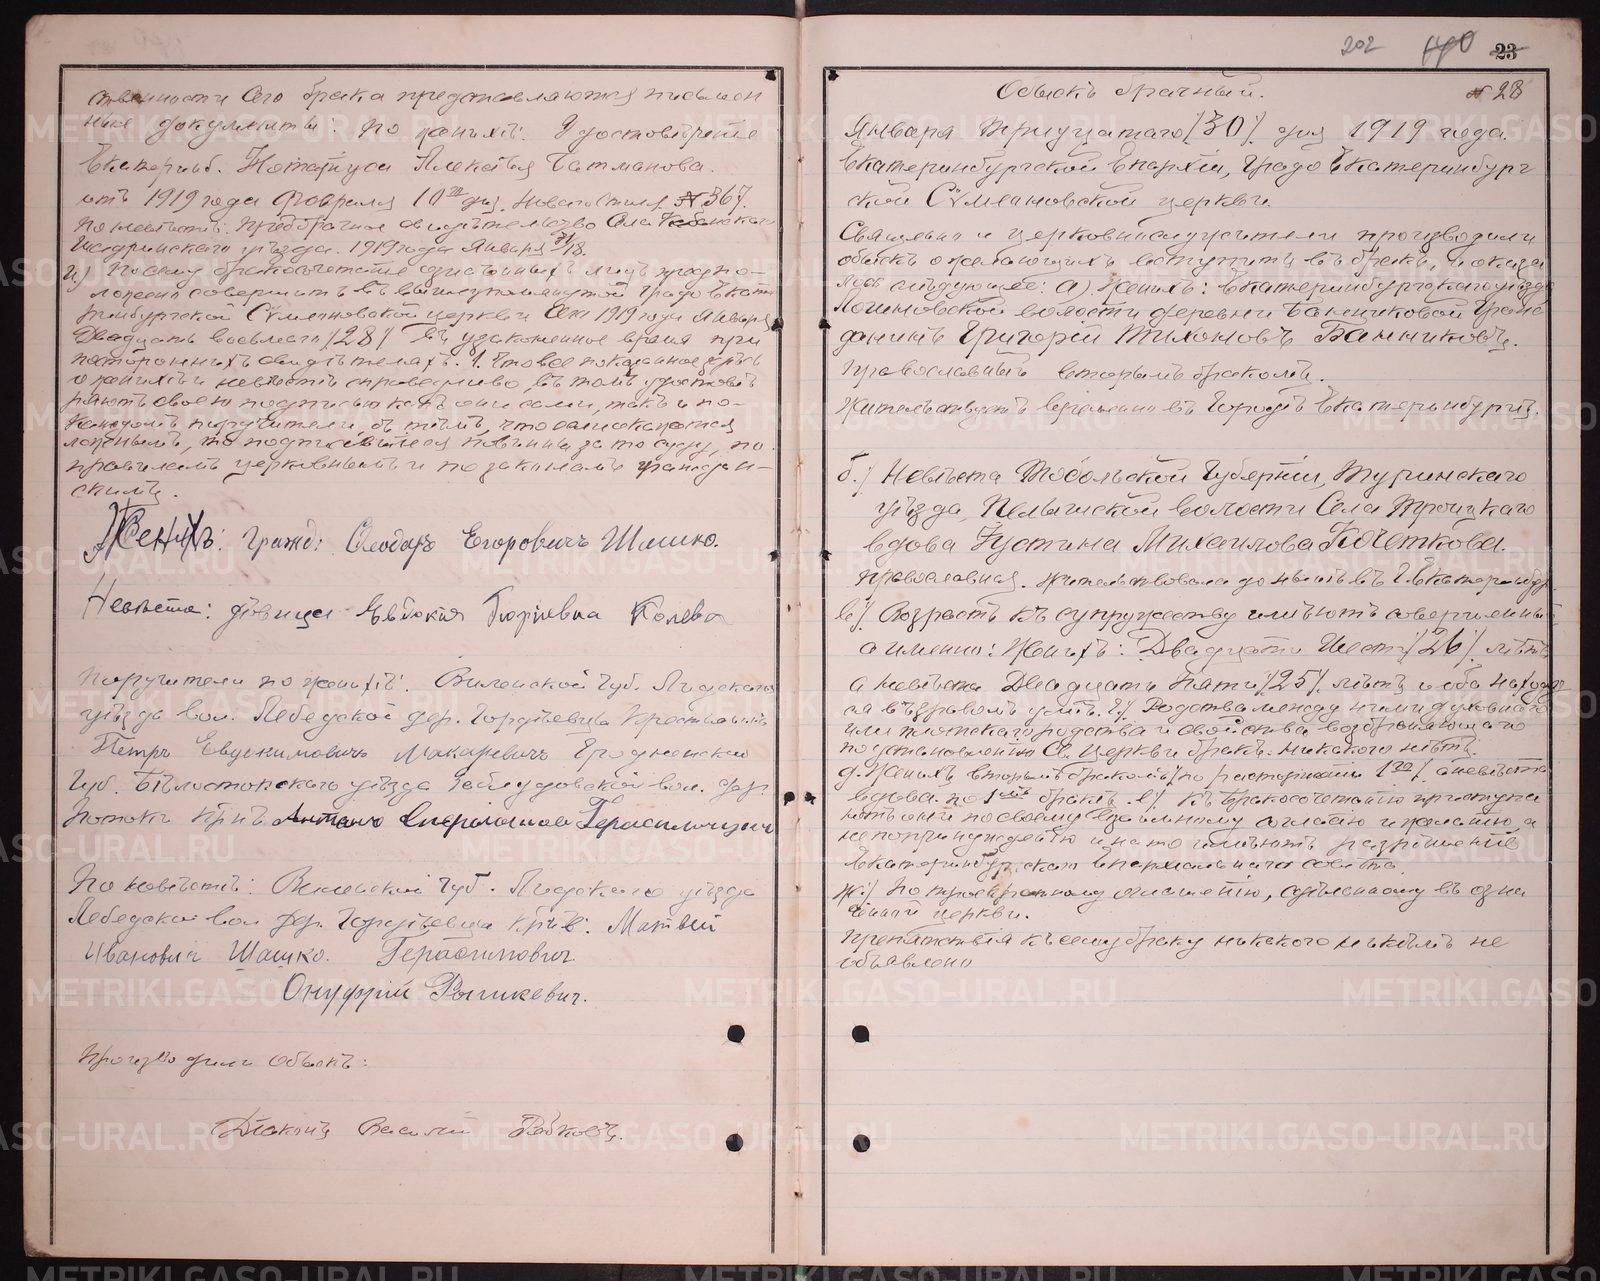 ственности сего брака представляются письмен
ные документы: По жениху: Удостовѣренiе
Екатеринб. Нотарiуса Алексѣя Батманова.
отъ 1919 года Февраля 10го дня. Новаго стиля № 367.
По невѣстѣ: Предбрачное свидѣтельство Села
Шадринскаго уѣзда. 1919 года Января /18.
и.) Посему бракосочетанiе означенныхъ лицъ предпо-
ложено совершить въ вышеупомянутой Градо Екате
ринбургской Симеоновской церкви Сего 1919 года Января
Двадцать восьмого /28/ въ узаконенное время при
постороннихъ свидѣтеляхъ. i. Что все показанное здѣсь
о женихѣ и невѣстѣ справедливо, въ томъ удостовѣ
ряютъ своею подписью какъ они сами, такъ и по-
каждомъ поручители, съ тѣмъ, что если окажется
ложнымъ, то подписавшiеся повинны за то суду, по
правиламъ церковнымъ и по законамъ граждан-
скимъ.
Женихъ: Гражд: Феодоръ Егоровичъ Шашко.
Невѣста: дѣвица Евдокiя Георгiевна
Поручители по женихѣ: Виленской губ. Лидскаго
уѣзда вол. Лебедской дер. Гордѣевцы крестьянинъ
Петръ Евдокимовичъ Макаревичъ Гродненской
Губ. Бѣлостокскаго уѣзда Заблудовской вол. дер.
Потока кр-нъ
По невѣстѣ: Виленской губ. Лидскаго уѣзда
Лебедской вол дер. Гордѣевцы кр-нъ: Матвѣй
Ивановичъ Шашко. Герасимович
Онуфрiй Рошкевич.
Производили обыскъ:
Дiаконъ Василiй
202 140 23
Обыскъ брачный. № 28
Января Тридцатаго /30/ дня 1919 года.
Екатеринбургской Епархiи, Градо Екатеринбург
ской Симеоновской церкви.
Священно и церковнослужители производили
обыскъ о желающихъ вступить въ бракъ, и оказа
лось слѣдующее: а) Женихъ: Екатеринбургскаго уѣзда
Логиновской волости деревни Банниковой Граж
данинъ Григорiй Тихоновъ Банниковъ.
Православный вторымъ бракомъ.
Жительствуетъ временно въ Городѣ Екатеринбургѣ.
б./ Невѣста Тобольской Губернiи, Туринскаго
уѣзда, Пелымской волости Села Троицкаго
вдова Устина Михайлова Кочеткова.
Православная. Жительствовала до нынѣ въ Г. Екатеринбур
в/. Возрастъ къ супружеству имѣютъ совершенный
а именно: Женихъ: Двадцати Шести /26/. лѣтъ
а невѣста Двадцати Пяти /25/. лѣтъ и оба находят
ся въ здравомъ умѣ. г/. Родства между ними духовнаго
или плотскаго родства и свойства возбраняющаго
по установленiю Св. Церкви бракъ. никакого нѣтъ.
д. Женихъ вторымъ бракомъ /по расторженiи 1го/. а невѣста
вдова. по 1мъ бракѣ. е/. Къ бракосочетанiю приступа
ютъ они по своему взаимному согласiю и желанiю, а
не по принужденiю и на то имѣютъ разрѣшенiе
Екатеринбургскаго Епархiальнаго совѣта.
ж/) По троекратному оглашенiю, сдѣланному въ озна
ченной церкви.
Препятствiя къ сему браку никакого никѣмъ не
объявлено